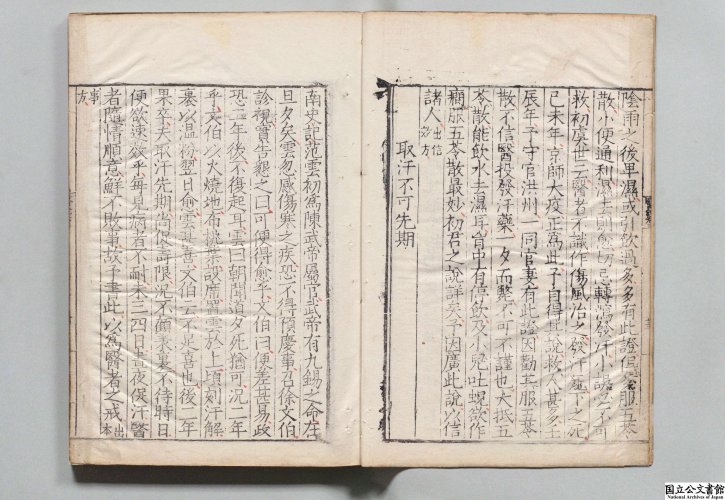 陰雨之後卑濕或引飲過多多有此證但服五苓
散小便通利濕去則愈切忌轉瀉發汗小誤必不可
救初虞世云醫者不識作傷風治之發汗死下之死
己未年京師大疫正為此予自得其說救人甚多壬
辰年予守官洪州一同官妻有此證因勸其服五苓
散不信醫投發汗藥一夕而斃不可不謹也大抵五
苓散能飲水去濕耳胷中有停飲及小兒吐哯欲作
癇服五苓散最妙初君之說詳矣予因廣此說以信
諸人出信効方
取汗不可先期
南史記范雲初為陳武帝屬官武帝有九錫之命在
旦夕矣雲忽感傷寒之疾恐不得預慶事召徐文伯
診視實告懇之曰可便得愈乎文伯曰便差甚易政
恐二年後不復起耳雲曰朝聞道夕死猶可况二年
乎文伯以火燒地布桃葉設席置雲於上頃刻汗解
裹以溫粉翌日愈雲甚喜文伯云不足喜也後二年
果卒夫取汗先期尚促壽限况不顧表裏不待時日
便欲速效乎每見病者不耐未三四日晝夜促汗醫
者隨情順意鮮不敗事故予書此以為醫者之戒出本
事方
国立公文書館
National Archives of Japan